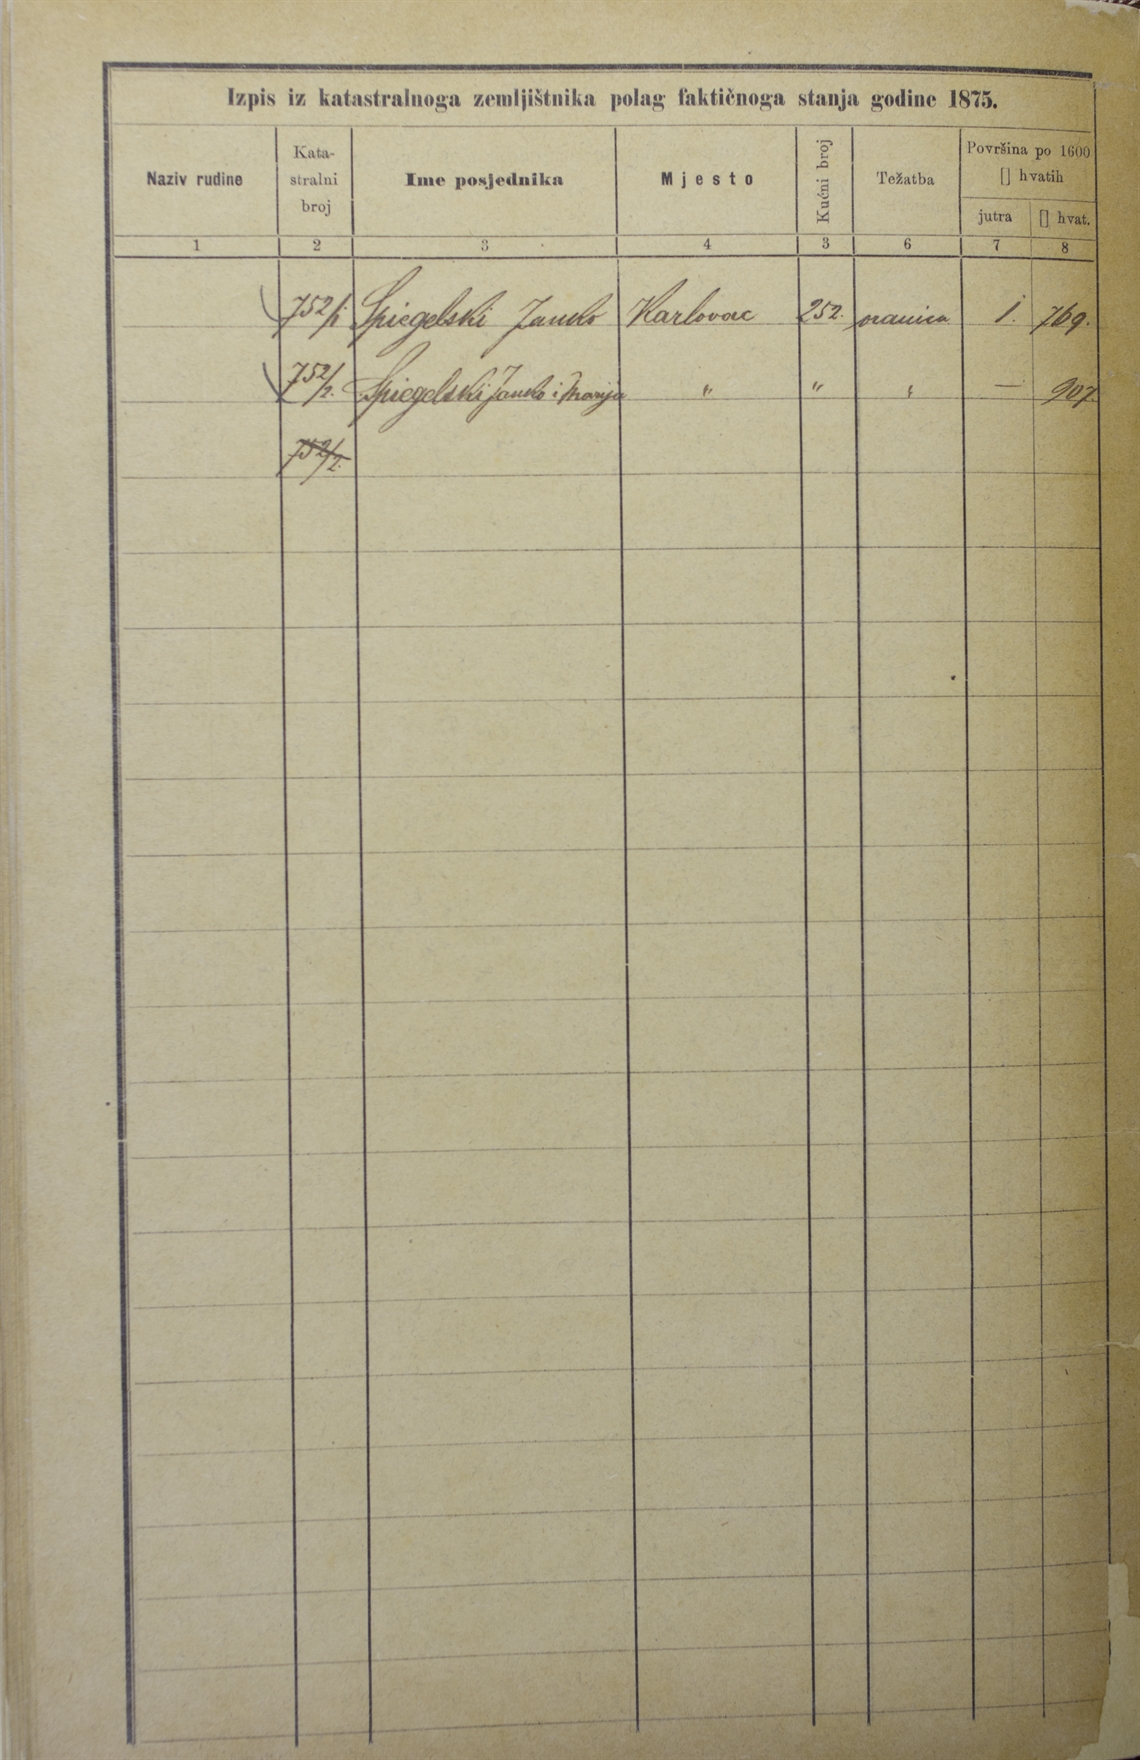 Izpis iz katastralnoga zemljištnika polag faktičnoga stanja godine 1875.
Naziv rudine
Kata-
stralni
broj
Ime posjednika
Mjesto
Kućni broj
Težatba
Površina po 1600
[] hvatih
jutra
[] hvat.
1 2 3 4 3 6 7 8
752/1 Spiegelski Janko Karlovac 252. oranica 1. 769.
752/2. Spiegelski Janko i Marija " " " — 907
752/2.